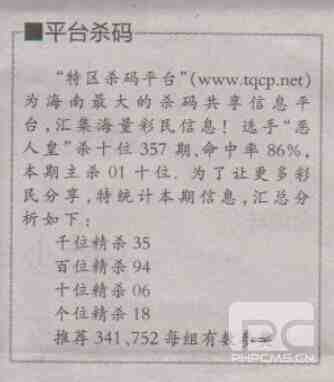 ■平台杀码
“特区杀码平台”(www.tqcp.net)
为海南最大的杀码共享信息平
台,汇集海量彩民信息！选手“恶
人皇”杀十位357期,命中率86%,
本期主杀01十位. 为了让更多彩
民分享,特统计本期信息,汇总分
析如下：
千位精杀 35
百位精杀 94
十位精杀 06
个位精杀 18
推荐 341,752 每组有数
PC
PHPCMS.CN